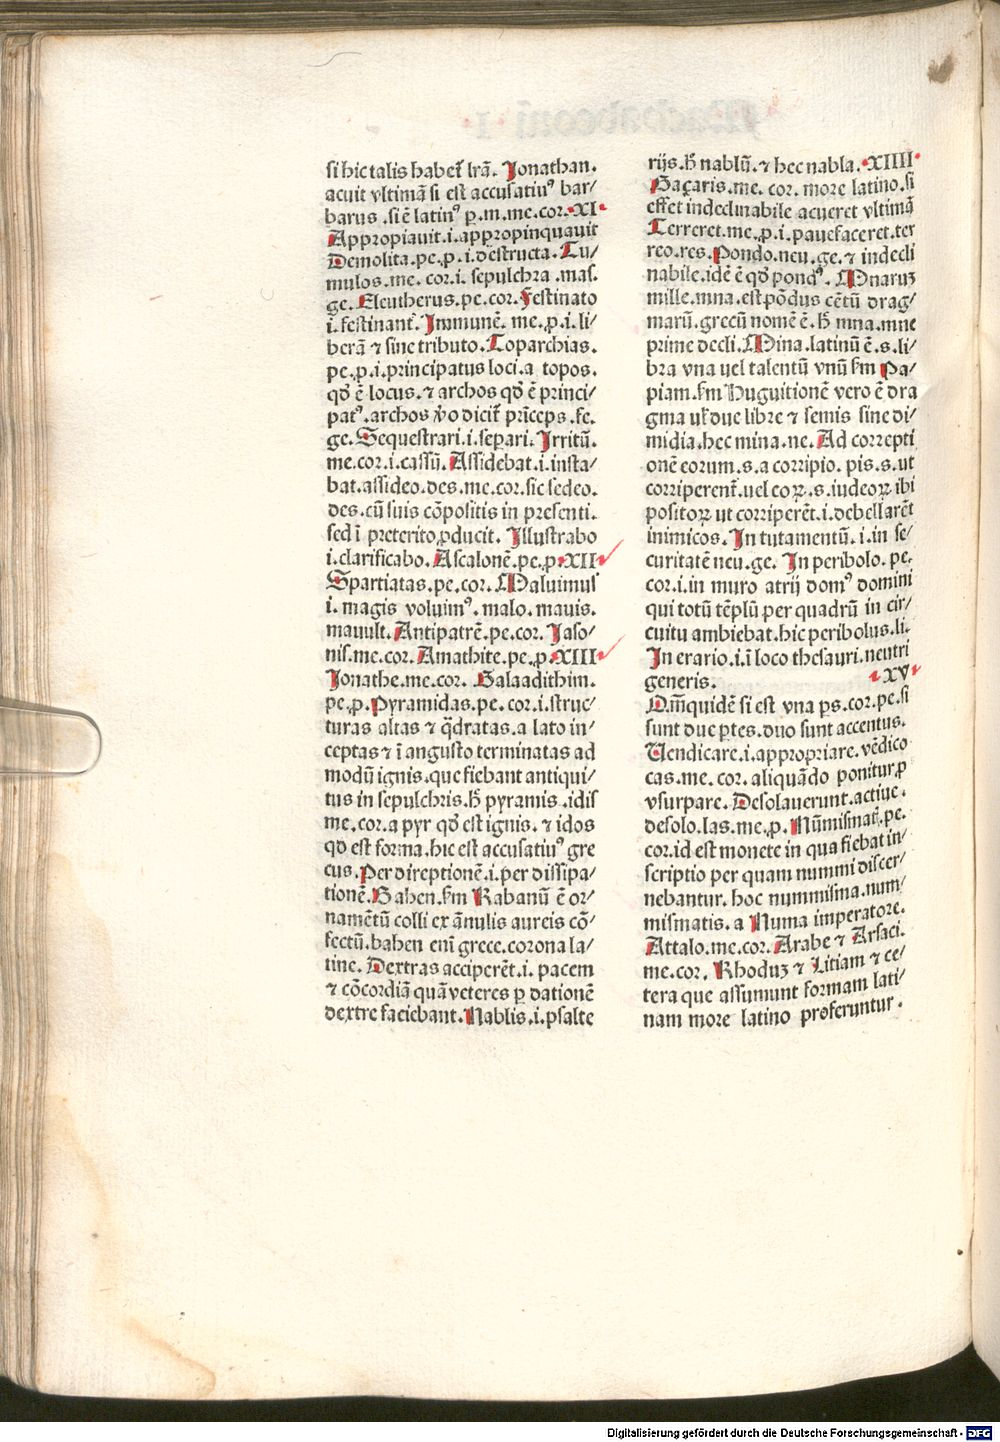 si hic talis haberꝫ lrã. Jonathan.
acuit vltimã si est accusatiuꝰ bar/
barus .si ē latinꝰ p̱.m.me.cor.XI
Appropiauit.i.appropinquauit
Demolita.pe.p.i.destructa.Tu/
mulos.me.cor.i.sepulchra.mas.
ge. Eleutherus.pe.cor.Festinato
i.festinant̃. Jmmunẽ. me.p.i.li/
berã ⁊ sine tributo.Toparchias.
pe.p.i.principatus loci.a topos.
qđ ē locus.⁊ archos qđ ē princi/
patꝰ.archos v̊o dicit̃ prĩceps.fe.
ge.Sequestrari.i.separi.Jrritũ.
me.cor.i.cassũ. Assidebat.i.insta/
bat.assideo.des.me.cor.sic sedeo.
des.cũ suis cõpositis in presenti.
sed ĩ preterito ꝓducit. Jllustrabo
i.clarificabo. Ascalonẽ.pe.p.XII
Spartiatas.pe.cor. Maluimus
i. magis voluimꝰ. malo. mauis.
mauult. Antipatrẽ.pe.cor. Jaso/
nis.me.cor. Amathite.pe.p.XIII
Jonathe.me.cor. Galaadithim.
pe.p.Pyramidas.pe.cor.i.struc/
turas altas ⁊ q̃dratas.a lato in/
ceptas ⁊ ĩ angusto terminatas ad
modũ ignis.que fiebant antiqui/
tus in sepulchris.h̃ pyramis.idis
me.cor.a pyr qđ est ignis.⁊ idos
qđ est forma.hic est accusatiuꝰ gre
cus.Per direptionẽ.i.per dissipa/
tionẽ.Bahen.fm Rabanũ ē or/
namẽtũ colli ex ãnulis aureis cõ/
fectũ.bahen eni grece.corona la/
tine. Dextras acciperẽt.i. pacem
⁊ cõcordiã quã veteres p̱ dationẽ
dextre faciebant.Nablis.i.psalte
rijs.h̃ nablũ.⁊ hec nabla.XIIII
Gaçaris.me.cor. more latino.si
esset indeclinabile acueret vltimã
Terreret.me.p.i.pauefaceret.ter
reo.res.Pondo.neu.ge.⁊ indecli
nabile.idẽ ē qđ pondꝰ. Mnarũ
mille.mna.est põdus cẽtũ drag/
marũ.grecũ nomẽ ē. h̃ mna.mne
prime decli.Mina.latinũ ē.s.li/
bra vna uel talentũ vnũ fm Pa/
piam.fm Huguitionẽ vero ē dra
gma uł due libre ⁊ semis sine di/
midia.hec mina.ne. Ad correpti
onẽ eorum.s.a corripio. pis.s.ut
corriperent̃.uel eoꝝ.s.iudeoꝝ ibi
positoꝝ ut corriperẽt.i.debellarẽt
inimicos. Jn tutamentũ.i.in se/
curitatẽ neu.ge. Jn peribolo.pe.
cor.i.in muro atrij domꝰ domini
qui totũ tẽplũ per quadrũ in cir/
cuitu ambiebat.hic peribolus.li.
Jn erario.i.ĩ loco thesauri.neutri
generis. XV
Qm̃quidẽ si est vna ps.cor.pe.si
sunt due ptes.duo sunt accentus.
Uendicare.i.appropriare.vẽdico
cas.me.cor.aliquãdo ponitur p
vsurpare. Desolauerunt.actiue.
desolo.las.me.p. Nũmismatꝭ.pe.
cor.id est monete in qua fiebat in/
scriptio per quam nummi discer/
nebantur.hoc nummisma.num/
mismatis.a Numa imperatore.
Attalo.me.cor. Arabe ⁊ Arsaci.
me.cor. Rhodũ ⁊ Litiam ⁊ ce/
tera que assumunt formam lati/
nam more latino proferuntur.
Digitalisierung gefördert durch die Deutsche Forschungsgemeinschaft - DFG